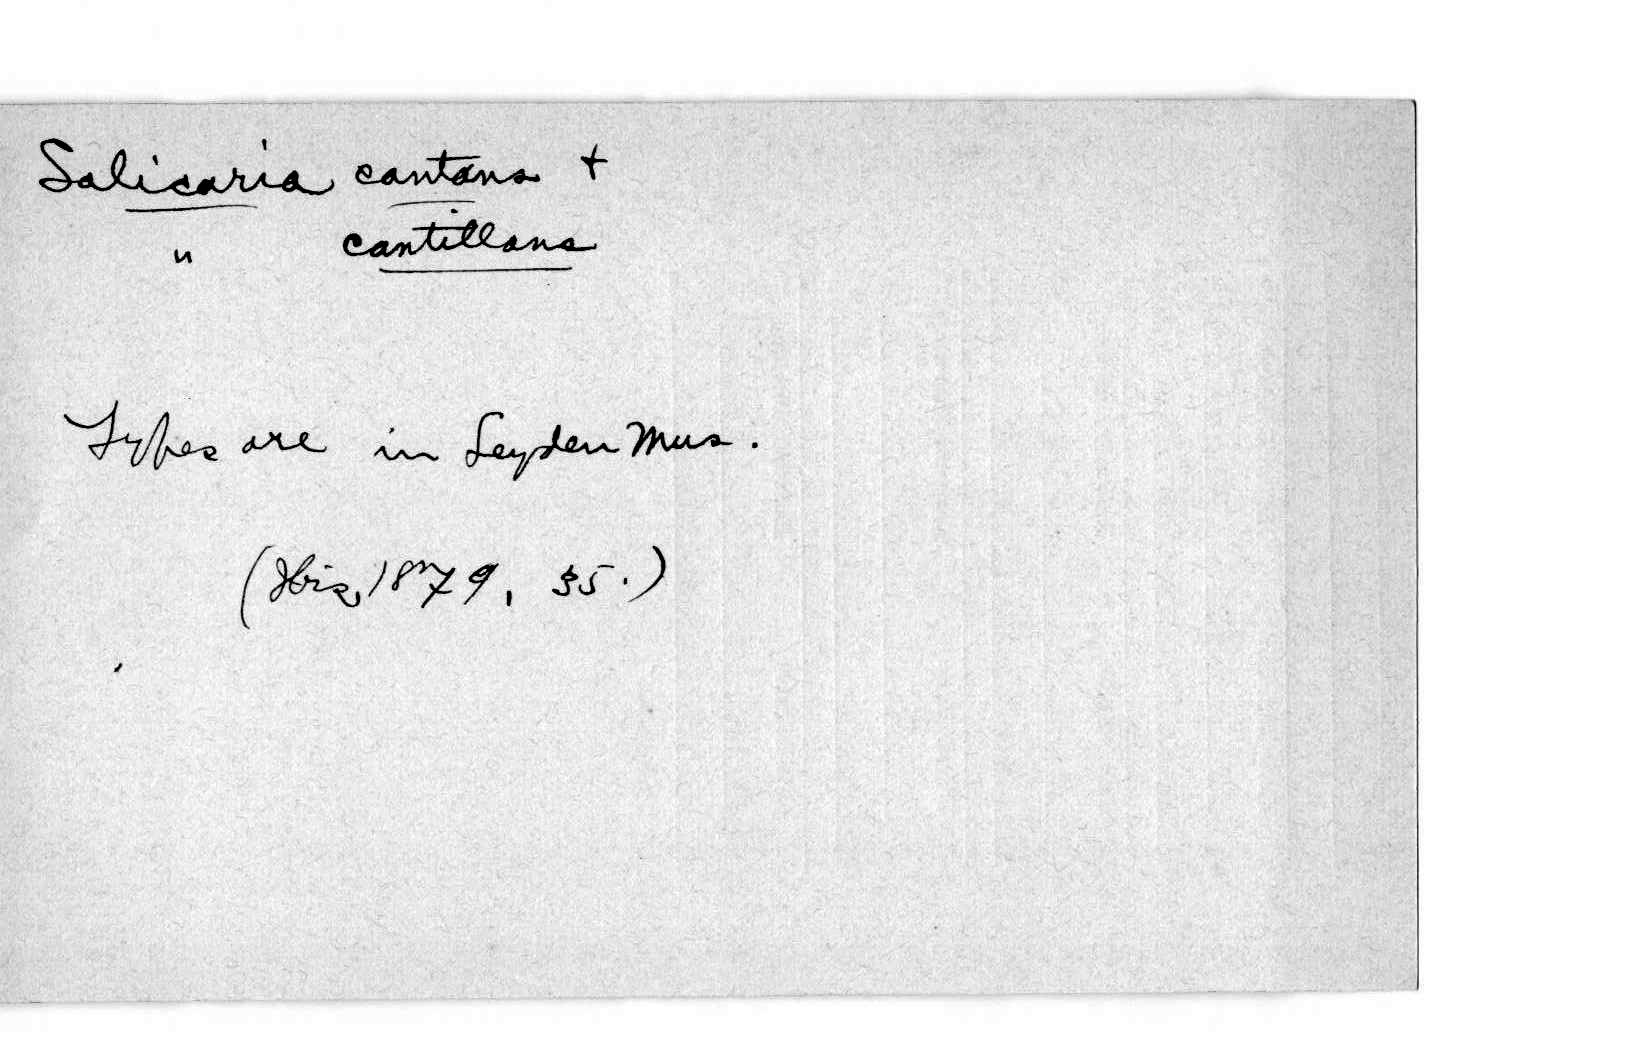 Salicaria cantans +
" cantillans
Types are in Leyden Mus.
(Ibis, 1879, 35.)